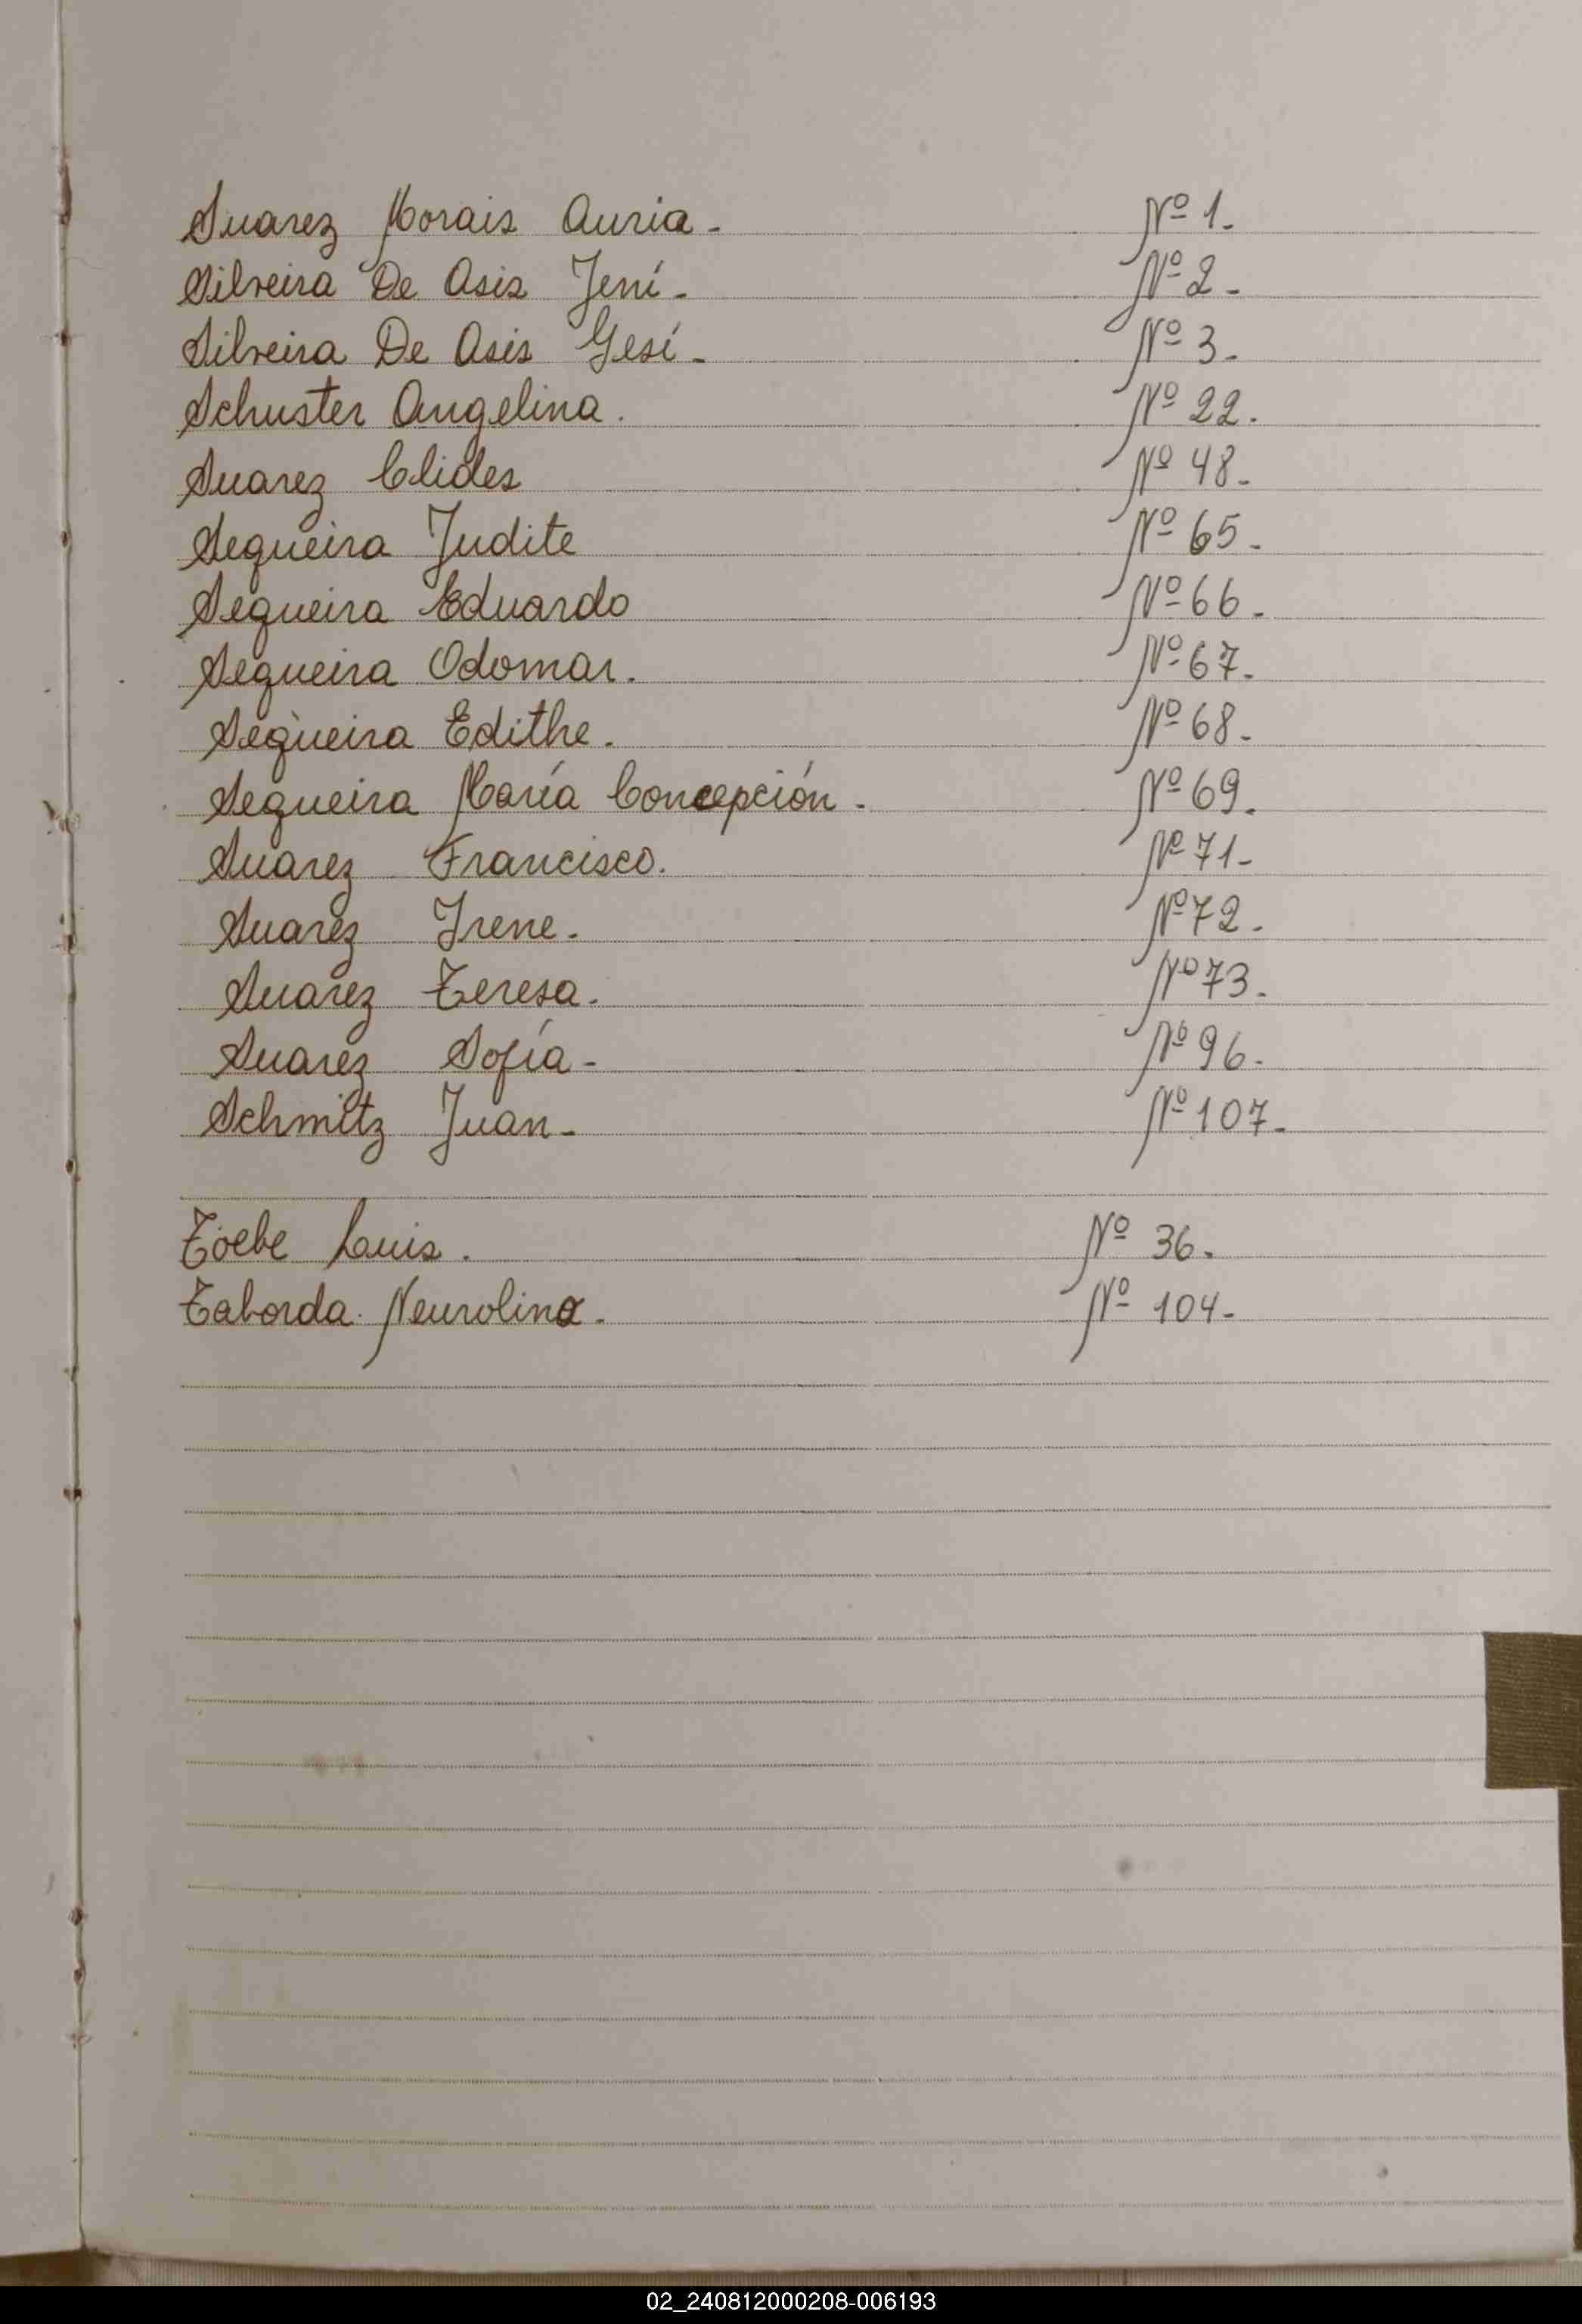 Suarez Morais Auria - Nº 1.
Silveira De Asis Jení - Nº 2 -
Silveira De Asis Gesí - Nº 3 -
Schuster Angelina. Nº 22.
Suarez Clides Nº 48 -
Sequeira Judite Nº 65 -
Sequeira Eduardo Nº 66 -
Sequeira Odomar. Nº 67.
Sequeira Edithe. Nº 68 -
Sequeira María Concepción. Nº 69.
Suarez Francisco. Nº 71 -
Suarez Irene. Nº 72.
Suarez Teresa. Nº 73.
Suarez Sofía - Nº 96.
Schmitz Juan - Nº 107.
Toebe Luis. Nº 36.
Taborda Neurolino. Nº 104 -
02_240812000208-006193